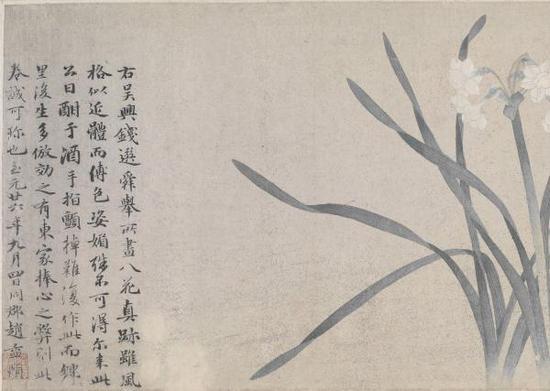 右吳興錢選舜舉所畫八花真跡雖風
格似近體而傅色姿媚殊不可得尔來此
公日酣于酒手指顫掉難復作此而鄉
里後生多倣効之有東家捧心之弊則此
卷誠可珎也至元廿六年九月四日同郡趙孟頫